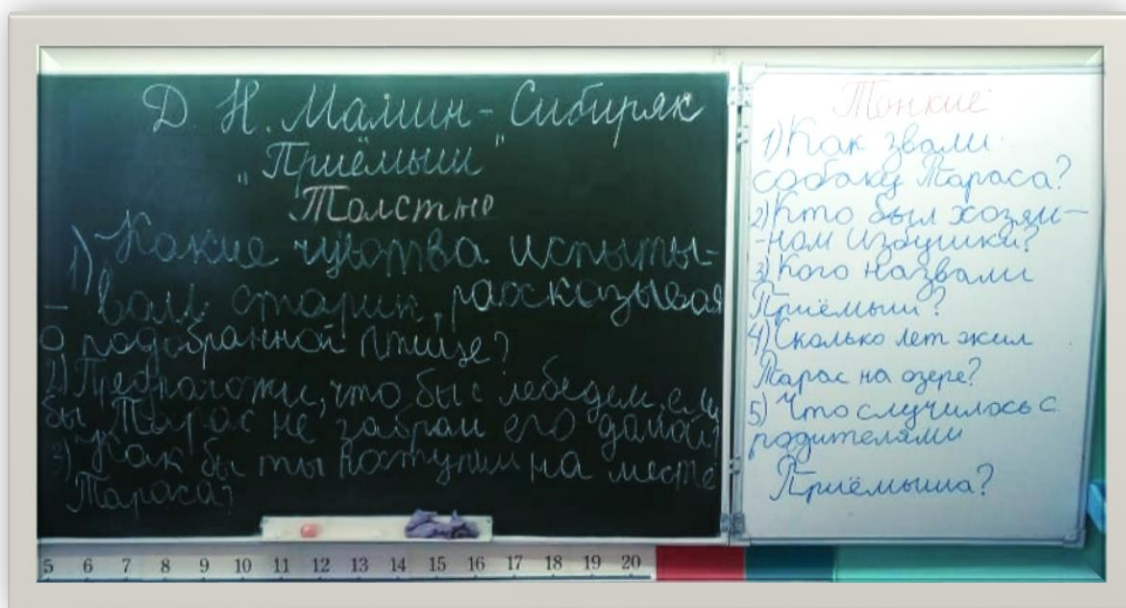 Д. Н. Мамин - Сибиряк
„Приёмыш"
Толстые
1) Какие чувства испыты-
- вал старик, рассказывая
о подобранной птице?
2) Предположи, что бы с лебедем, если
бы Тарас не забрал его домой?
3) Как бы ты поступил на месте
Тараса?
Тонкие
1) Как звали
собаку Тараса?
2) Кто был хозяи-
-ном избушки?
3) Кого назвали
Приёмыш?
4) Сколько лет жил
Тарас на озере?
5) Что случилось с
родителями
Приёмыша?
5 6 7 8 9 10 11 12 13 14 15 16 17 18 19 20